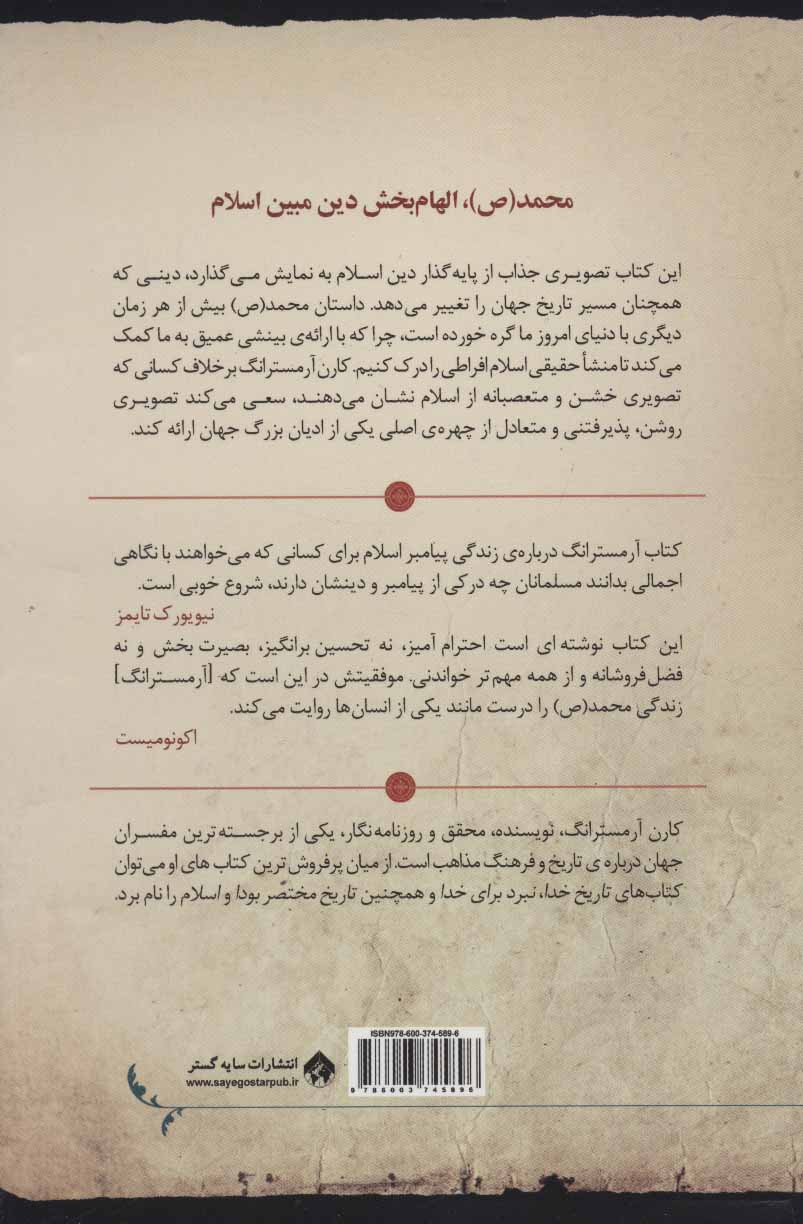 محمد(ص)، الهام‌بخش دین مبین اسلام
این کتاب تصویری جذاب از پایه‌گذار دین اسلام به نمایش می‌گذارد، دینی که
همچنان مسیر تاریخ جهان را تغییر می‌دهد. داستان محمد(ص) بیش از هر زمان
دیگری با دنیای امروز ما گره خورده است، چرا که با ارائه‌ی بینشی عمیق به ما کمک
می‌کند تا منشأ حقیقی اسلام افراطی را درک کنیم. کارن آرمسترانگ برخلاف کسانی که
تصویری خشن و متعصبانه از اسلام نشان می‌دهند، سعی می‌کند تصویری
روشن، پذیرفتنی و متعادل از چهره‌ی اصلی یکی از ادیان بزرگ جهان ارائه کند.
کتاب آرمسترانگ درباره‌ی زندگی پیامبر اسلام برای کسانی که می‌خواهند با نگاهی
اجمالی بدانند مسلمانان چه درکی از پیامبر و دینشان دارند، شروع خوبی است.
نیویورک تایمز
این کتاب نوشته ای است احترام آمیز، نه تحسین برانگیز، بصیرت بخش و نه
فضل‌فروشانه و از همه مهم‌تر خواندنی. موفقیتش در این است که [آرمسترانگ]
زندگی محمد(ص) را درست مانند یکی از انسان‌ها روایت می‌کند.
اکونومیست
کارن آرمسترانگ، نویسنده، محقق و روزنامه‌نگار، یکی از برجسته‌ترین مفسران
جهان درباره ی تاریخ و فرهنگ مذاهب است. از میان پرفروش‌ترین کتاب های او می‌توان
کتاب‌های تاریخ خدا، نبرد برای خدا و همچنین تاریخ مختصر بودا و اسلام را نام برد.
ISBN978-600-374-589-6
9 786003 745896
انتشارات سایه گستر
www.sayegostarpub.ir